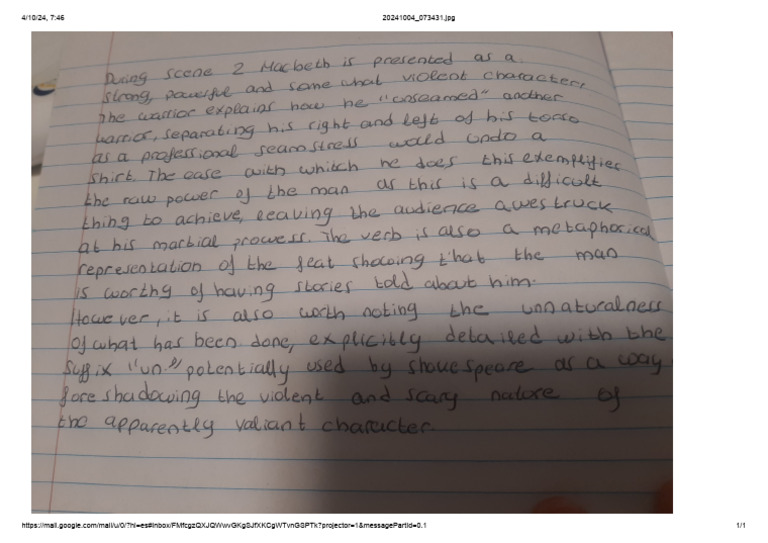 4/10/24, 7:46
20241004_073431.jpg
During scene 2 Macbeth is presented as a
strong, powerful and some what violent character,
the warrior explains how he "unseamed" another
warrior, separating his right and left of his torso
as a professional seamstress would undo a
shirt. The ease with whitch he does this exemplifies
the raw power of the man as this is a difficult
thing to achieve, leaving the audience awestruck
at his martial prowess. The verb is also a metaphorical
representation of the feat showing that the man
is worthy of having stories told about him.
However, it is also worth noting the unnaturalness
of what has been done, explicitly detailed with the
suffix "un-" potentially used by shakespeare as a way
foreshadowing the violent and scary nature of
the apparently valiant character.
1/1